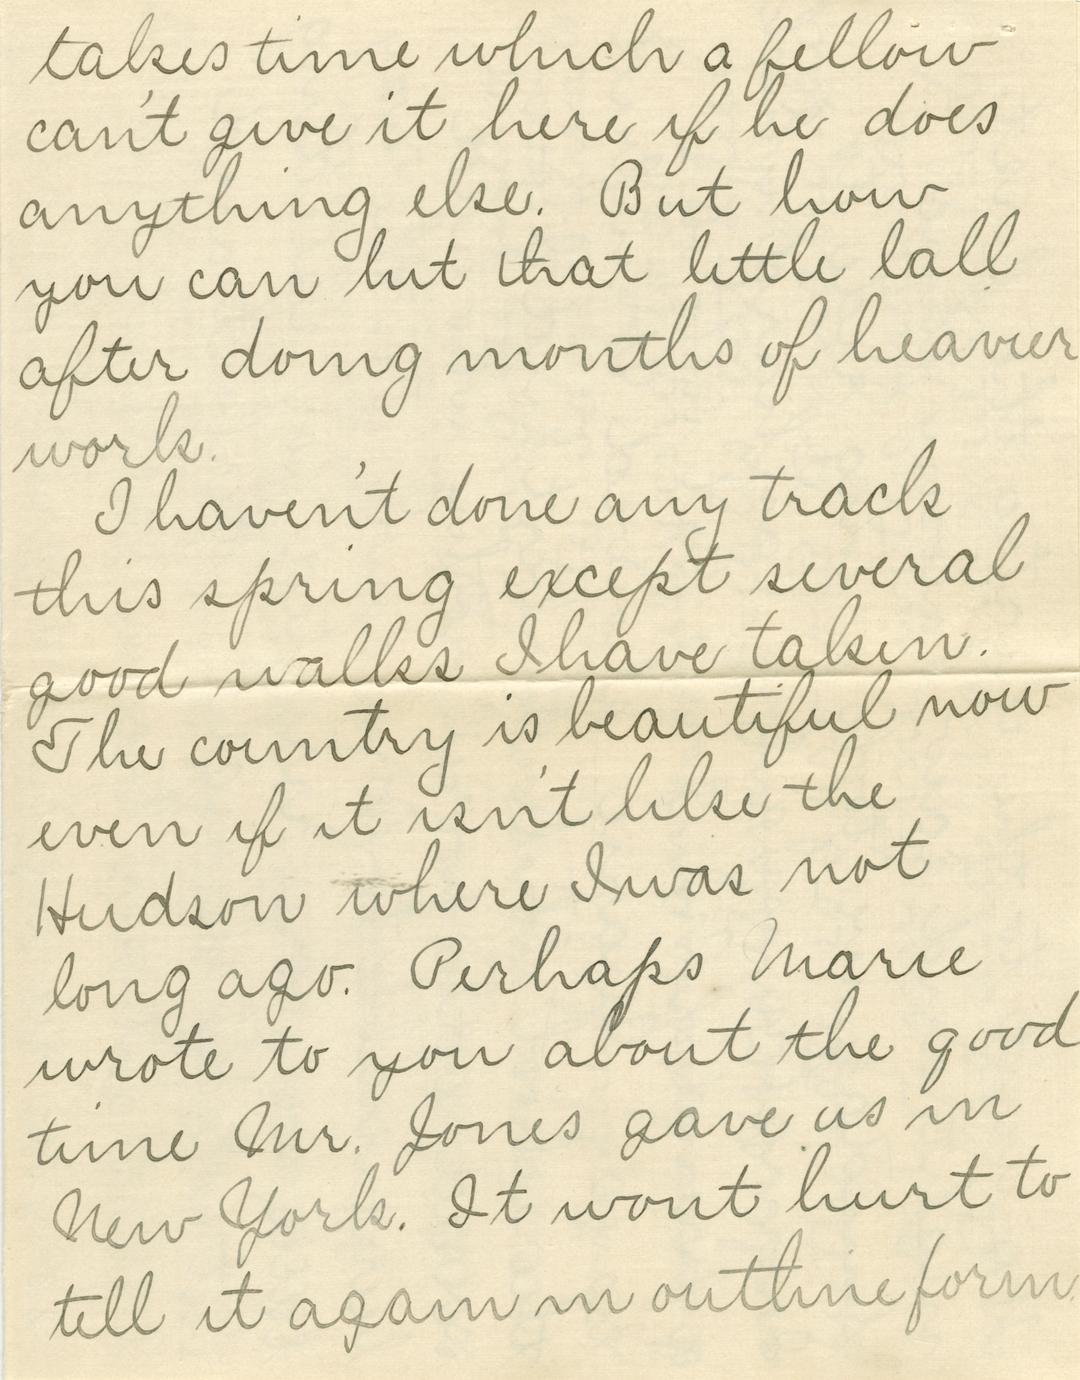 takes time which a fellow
can't give it here if he does
anything else. But how
you can hit that little ball
after doing months of heavier
work.
I haven't done any track
this spring except several
good walks I have taken.
The country is beautiful now
even if it isn't like the
Hudson where I was not
long ago. Perhaps Marie
wrote to you about the good
time Mr. Jones gave us in
New York. It wont hurt to
tell it again in outline form.